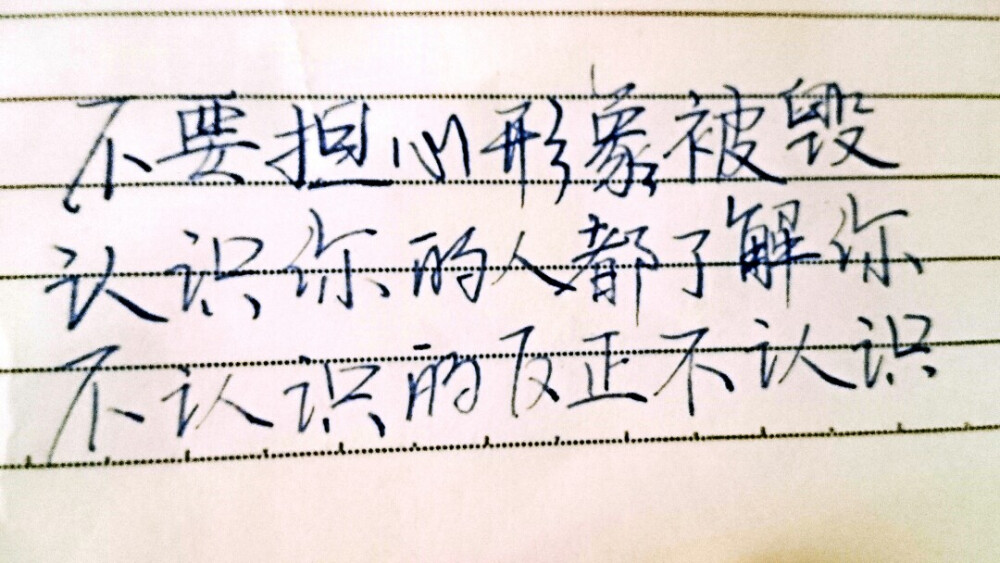 不要担心形象被毁
认识你的人都了解你
不认识的反正不认识